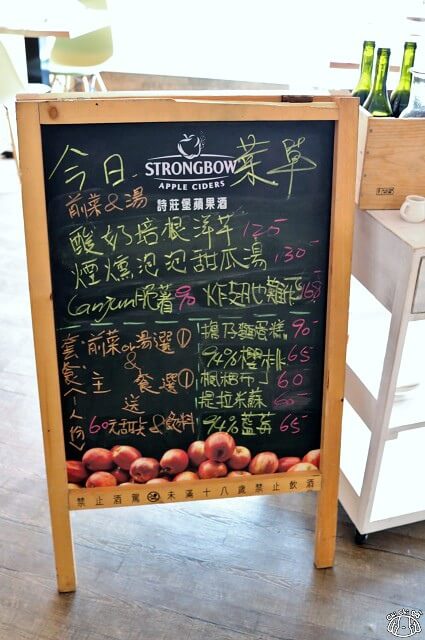 今日 菜單
STRONGBOW
APPLE CIDERS
詩莊堡蘋果酒
前菜&湯
酸奶培根洋芋 125
煙燻泡泡甜瓜湯 130
Canjun脆薯 90 炸翅也雞 168
套餐(一人份)
前菜or湯選①
&
主食選①
送
60元甜点&飲料
擔仔麵蛋糕 90
94%櫻桃 65
楓糖布丁 60
提拉米蘇 60
94%藍莓 65
禁止酒駕 未滿十八歲禁止飲酒